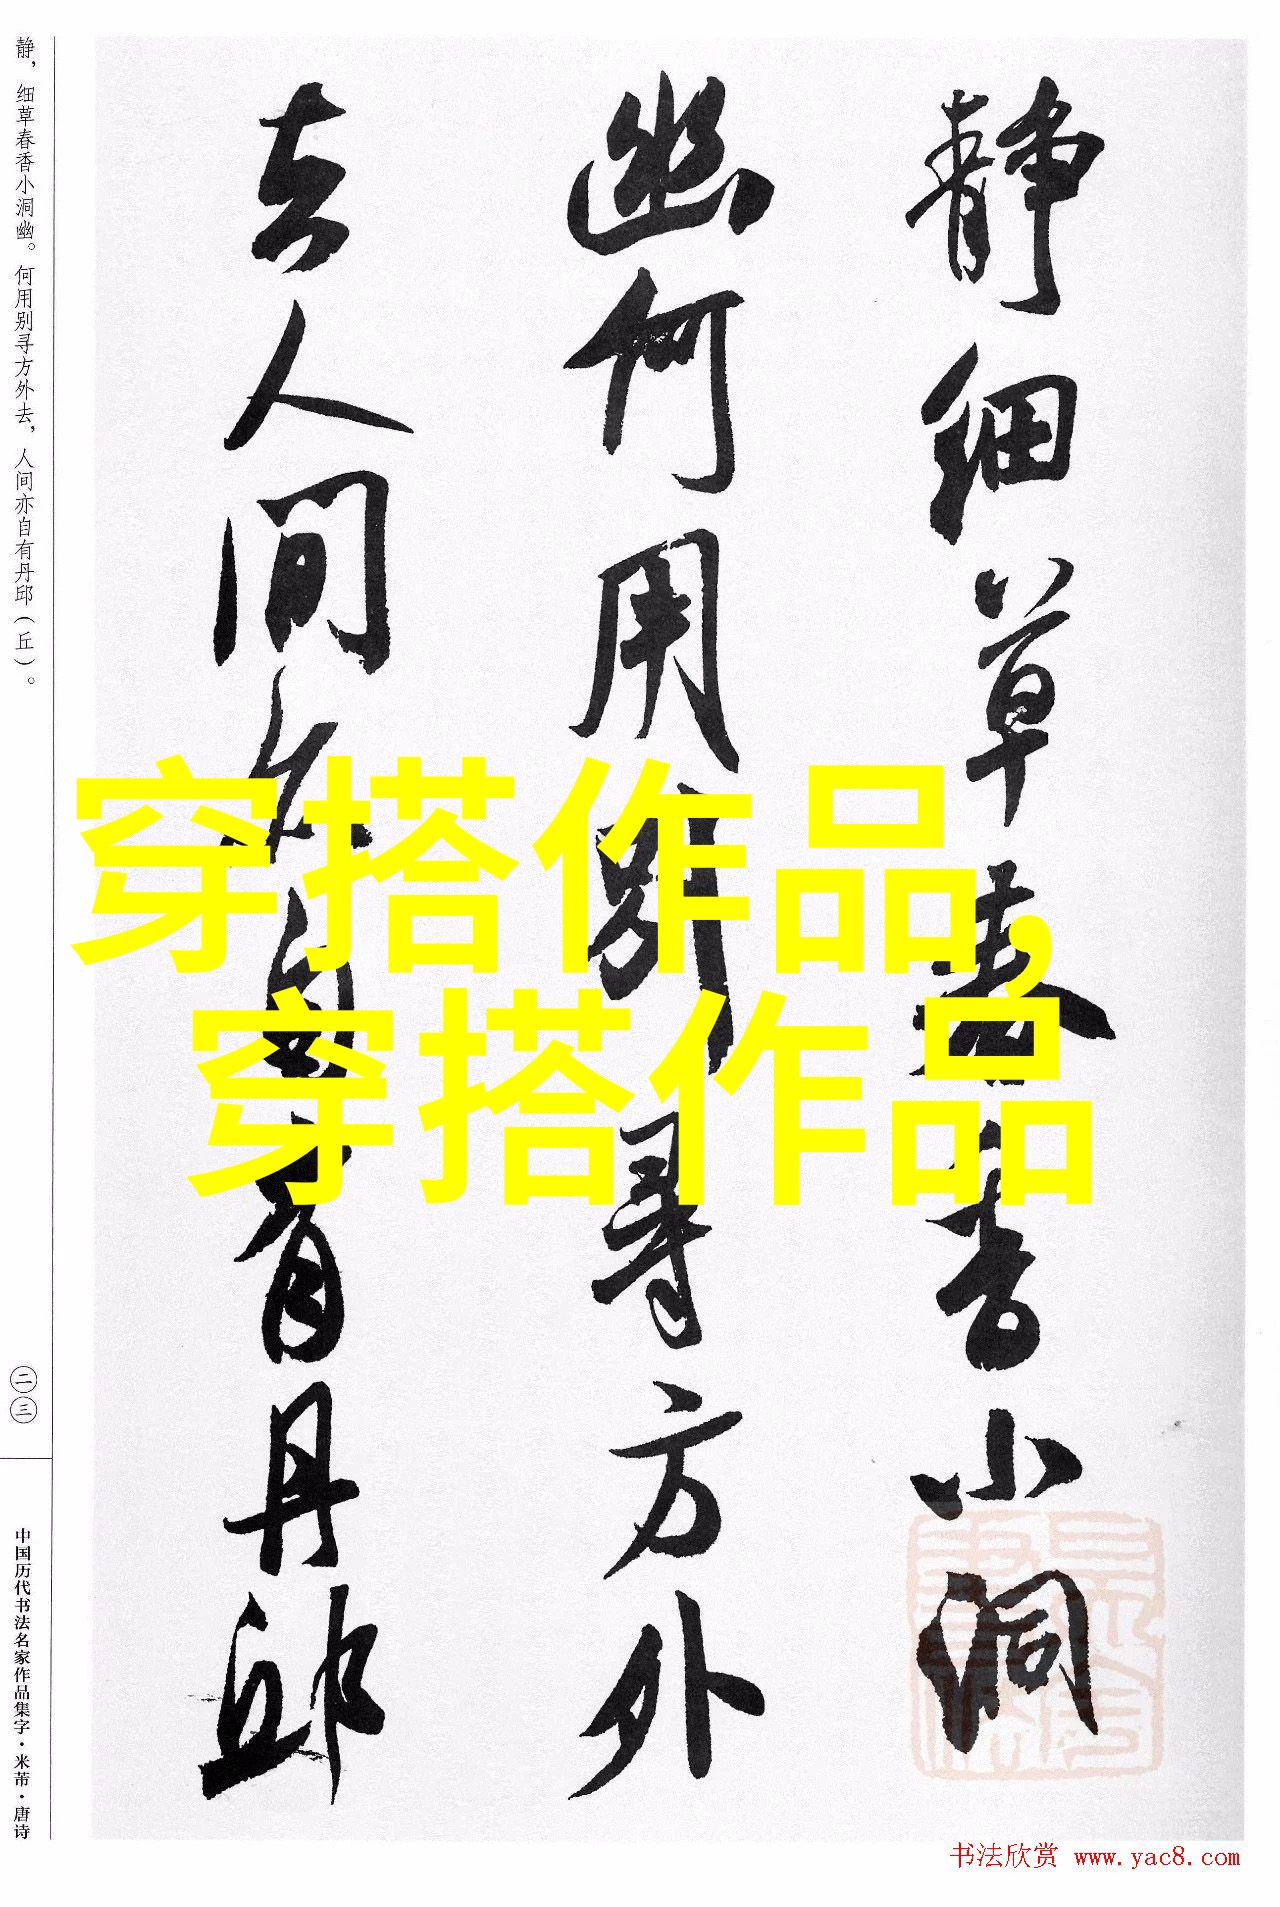 静细草春香小洞
幽何用别寻方外
去人间亦自有丹邱
静，细草春香小洞幽。何用别寻方外去，人间亦自有丹邱（丘）。
二三
中国历代书法名家作品集字·米芾·唐诗
穿搭作品，
穿搭作品
书法欣赏 www.yac8.com